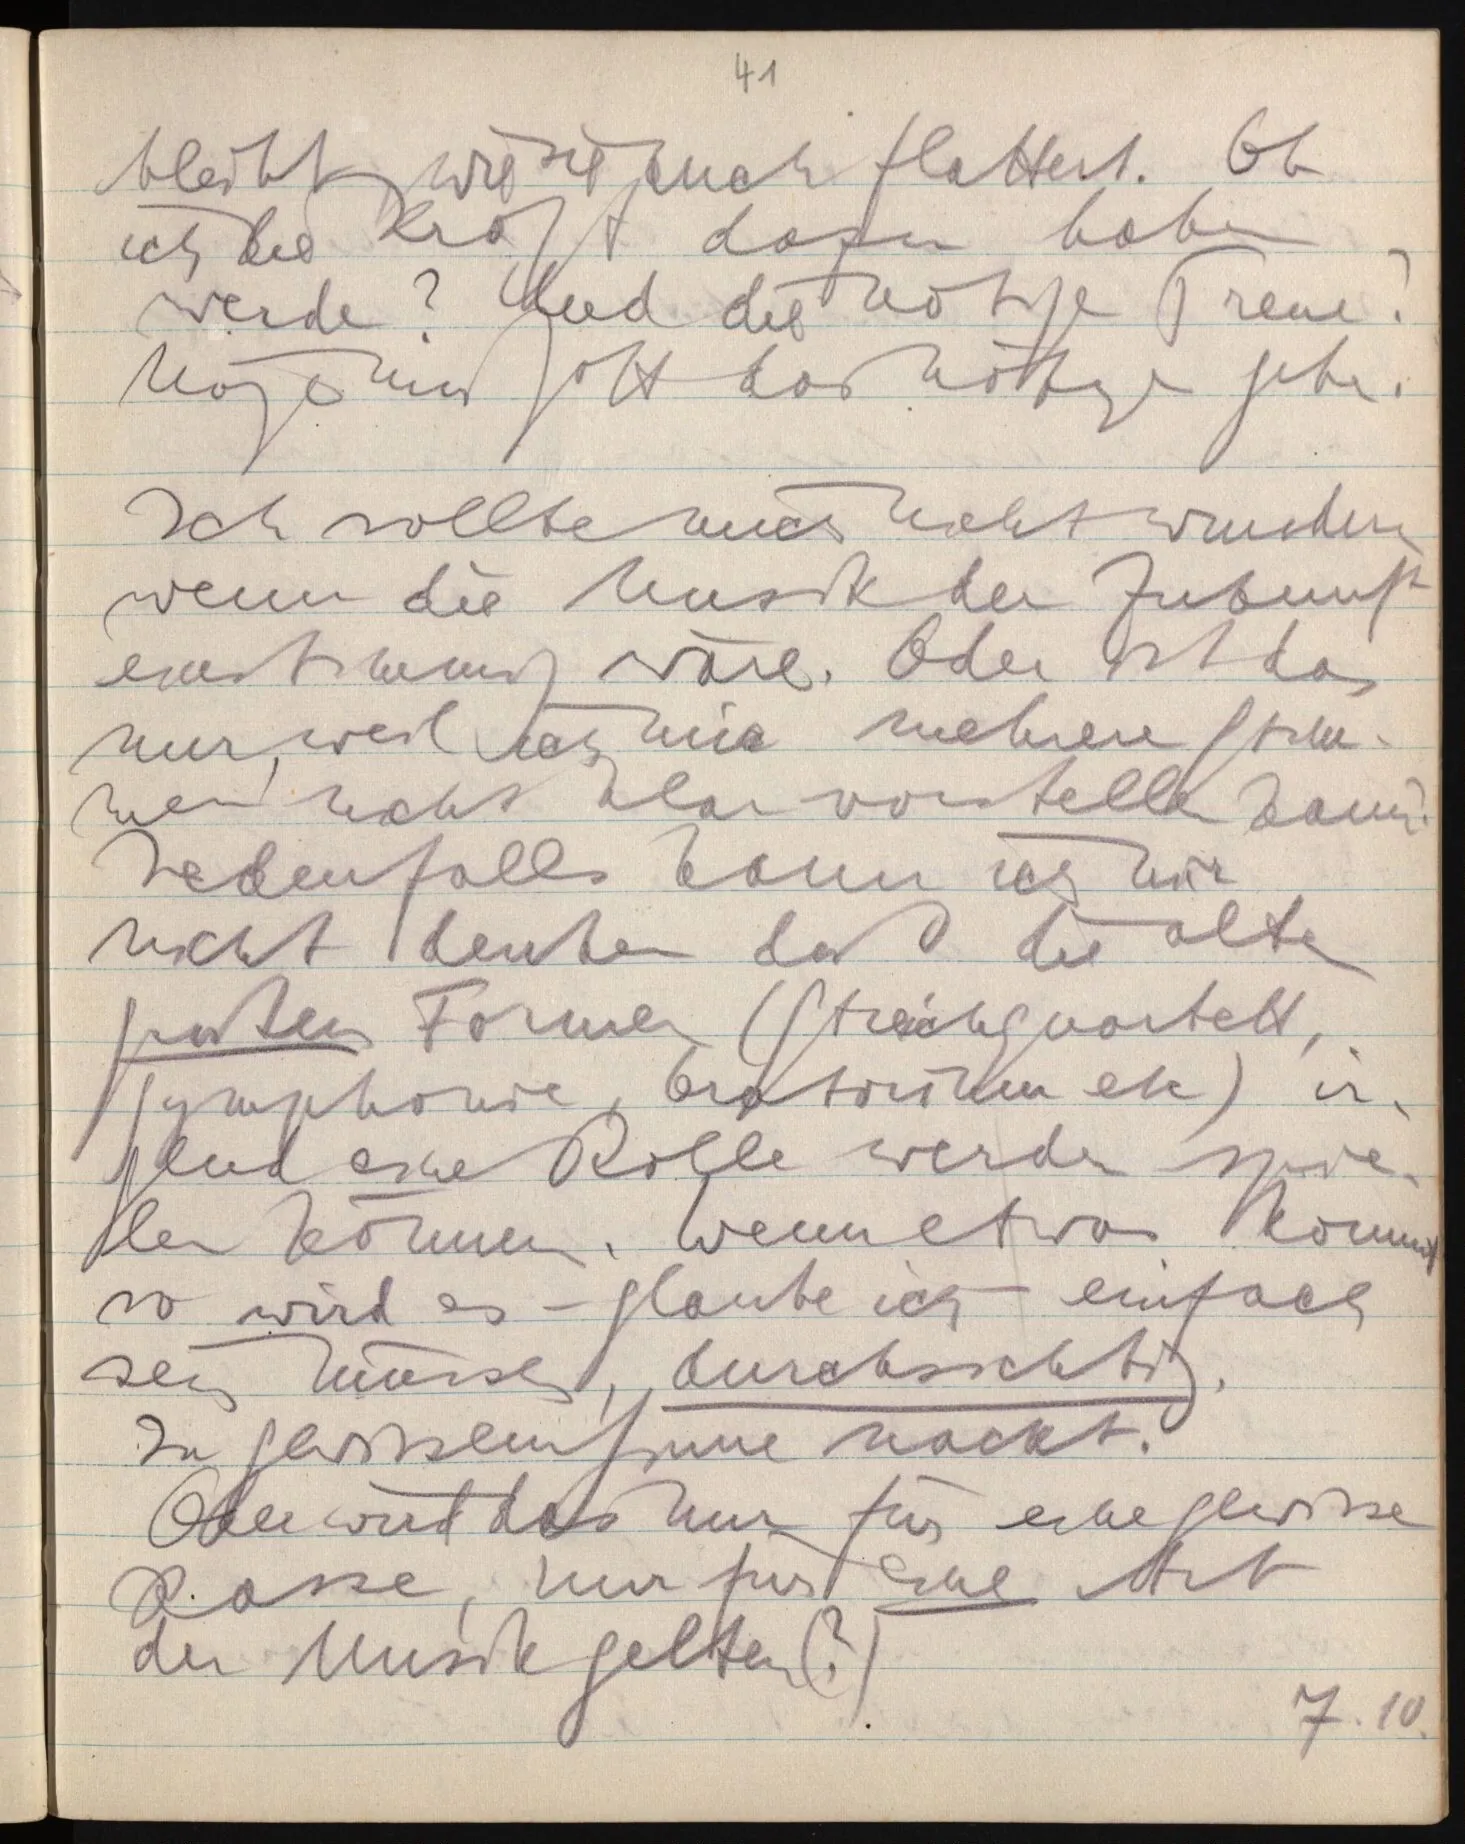 41
bleibt, wie sie auch flattert. Ob
ich die Kraft dazu haben
werde? Und die nötige Treue?
Möge mir Gott das Nötige geben.
Ich sollte mich nicht wundern
wenn die Musik der Zukunft
einstimmig wäre. Oder ist das
nur, weil ich mir mehrere Stim-
men nicht klar vorstellen kann?
Jedenfalls kann ich mir
nicht denken daß die alten
großen Formen (Streichquartett,
Symphonie, Oratorium etc) ir-
gend eine Rolle werden spie-
len können. Wenn etwas kommt
so wird es – glaube ich – einfach
sein müssen, durchsichtig.
In gewissem Sinne nackt.
Oder wird das nur für eine gewisse
Rasse, nur für eine Art
der Musik gelten(?)
7.10.